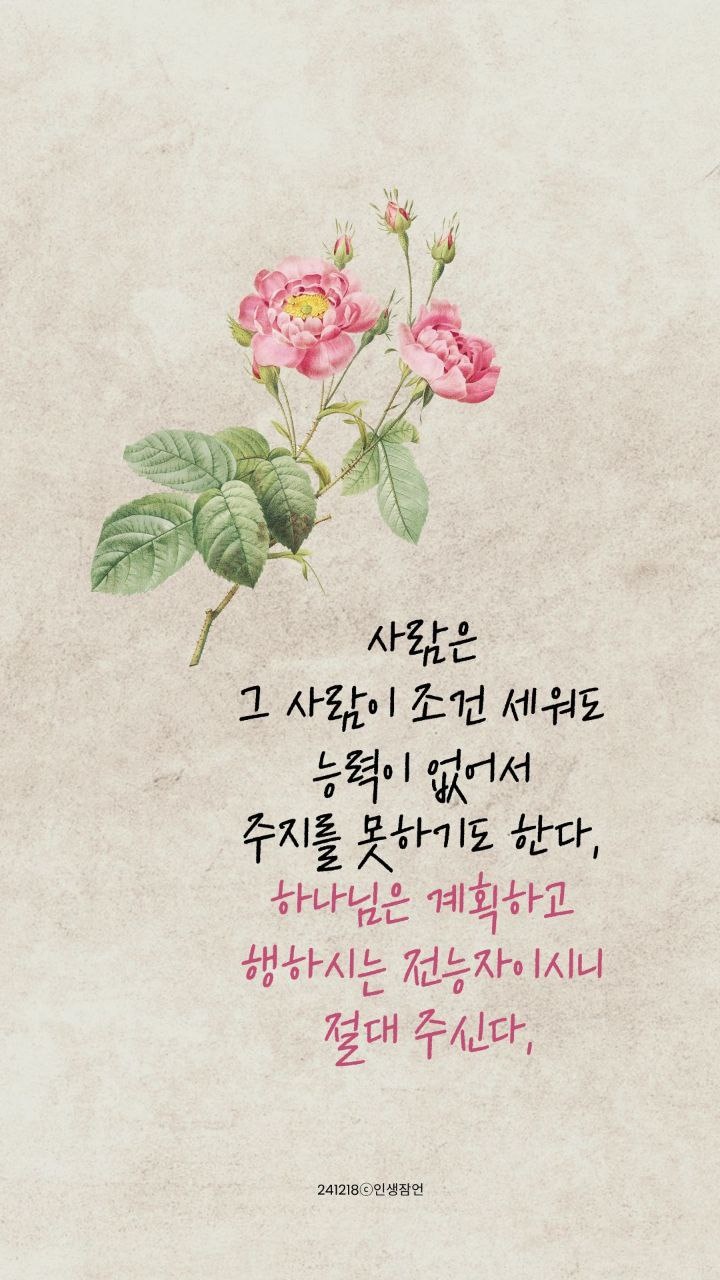 사람은
그 사람이 조건 세워도
능력이 없어서
주지를 못하기도 한다,
하나님은 계획하고
행하시는 전능자이시니
절대 주신다,
241218ⓒ인생잠언